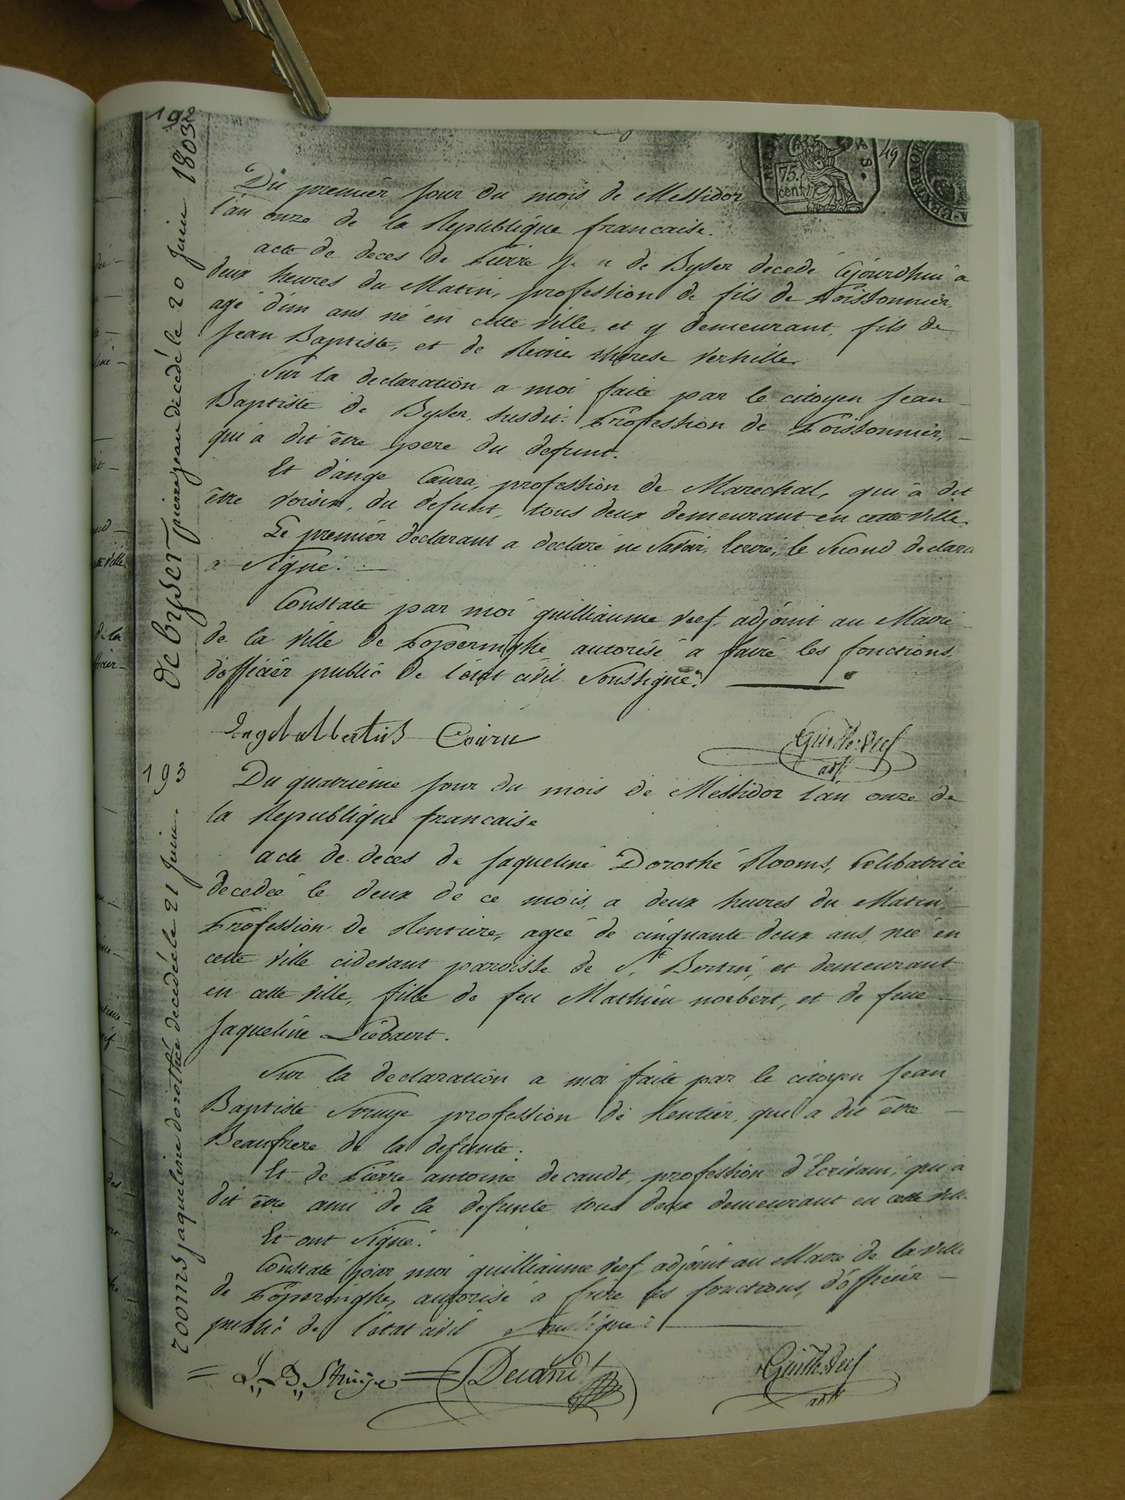 192
de byser pierre jean décédé le 20 juin 1803
75
cent
49
Du premier jour du mois de Messidor
l'an onze de la Republique francaise.
acte de deces de Pierre de Byser decedé aijourdhui a
deux heures du Matin, profession de fils de Poissonnier
agé d'un ans né en cette ville, et y demeurant, fils de
Jean Baptiste, et de therese verhille.
Sur la declaration a moi faite par le citoyen Jean
Baptiste de Byser, susdit. Profession de Poissonnier,
qui a dit être pere du defunt.
Et d'ange Coura, profession de Marechal, qui a dit
être voisin, du defunt, tous deux demeurant en cette ville.
Le premier declarant a declaré ne savoir, le second declara
a signé.
Constaté par moi guilliaume veef adjoint au Maire
de la ville de Poperinghe autorisé a faire les fonctions
d'officier public de l'etat civil Soussigné.
Engelbertus Couru
Guille: Veef
adj.
193
rooms jaqueline dorothée decédée le 21 juin.
Du quatrieme jour du mois de Messidor l'an onze de
la Republique francaise
acte de deces de Jaqueline Dorothé Rooms, Celibatrice
decedeé le deux de ce mois, a deux heures du Matin
Profession de Rentiere, agée de cinquante deux ans, neé en
cette ville cidevant paroisse de St. Bertin, et demeurant
en cette ville, fille de feu Mathieu norbert, et de feue
Jaqueline Liebaert.
Sur la declaration a moi faite par le citoyen Jean
Baptiste Struye profession de Rentier, qui a dit être
Beaufrere de la defunte.
Et de Pierre antoine decaudt, profession d'Ecrivain, qui a
dit être ami de la defunte tous deux demeurant en cette ville
Et ont signé.
Constaté par moi guilliaume veef adjoint au Maire de la ville
de Poperinghe, autorisé a faire les fonctions, d'officier
public de l'etat civil Soussigné.
J. B. Struye Decaudt
Guille: Veef
adj.